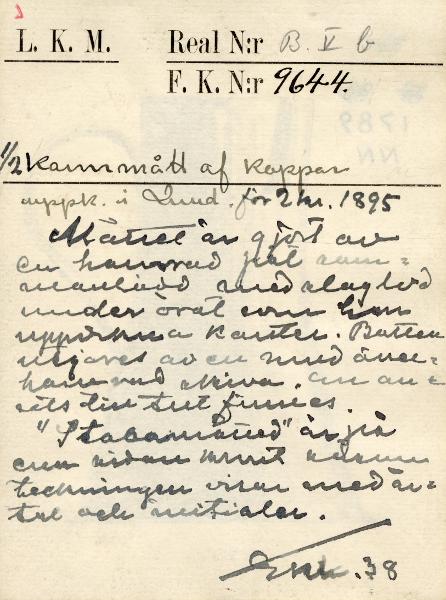 L. K. M. Real N:r B. V b
F. K. N:r 9644.
1/2 Kannmått af koppar
uppk. i Lund. för 2 kr. 1895
Måttet är gjort av
en hamrad plåt sam=
manlödd med slaglod
under örat som har
uppvikna kanter. Botten
utgöres av en med
hamrad skiva.
finnes.
"Stadsmåtted" är på
ena sidan
teckningen visar med år=
tal och initialer.
38